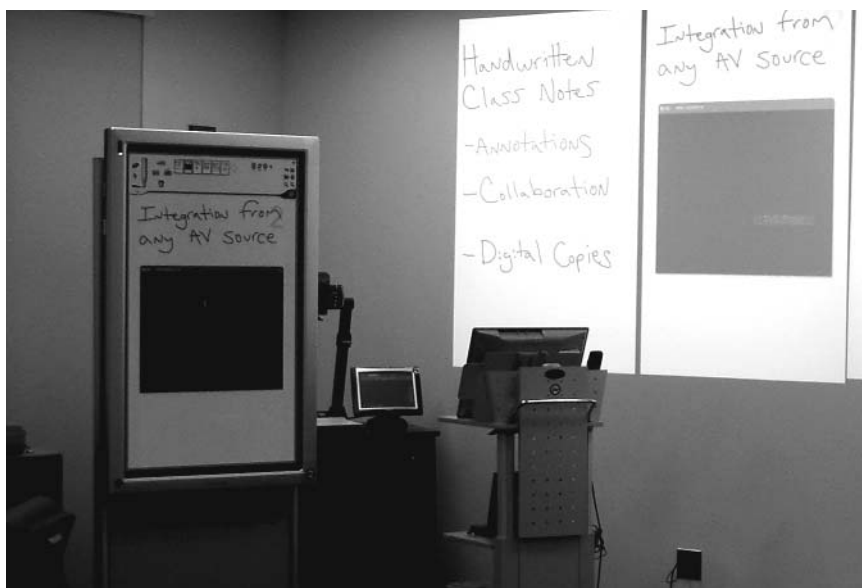 Integration from
any AV Source
2
Handwritten
Class Notes
-Annotations
-Collaboration
-Digital Copies
Integration from
any AV Source